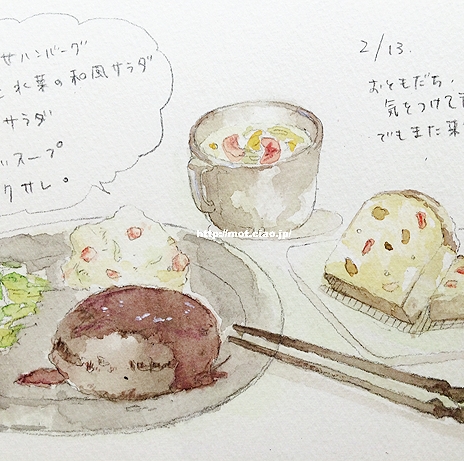 せハンバーグ
と水菜の和風サラダ
サラダ
いスープ
クサレ。
2/13.
おともだち、
気をつけて
でもまた
http://mot.ciao.jp/